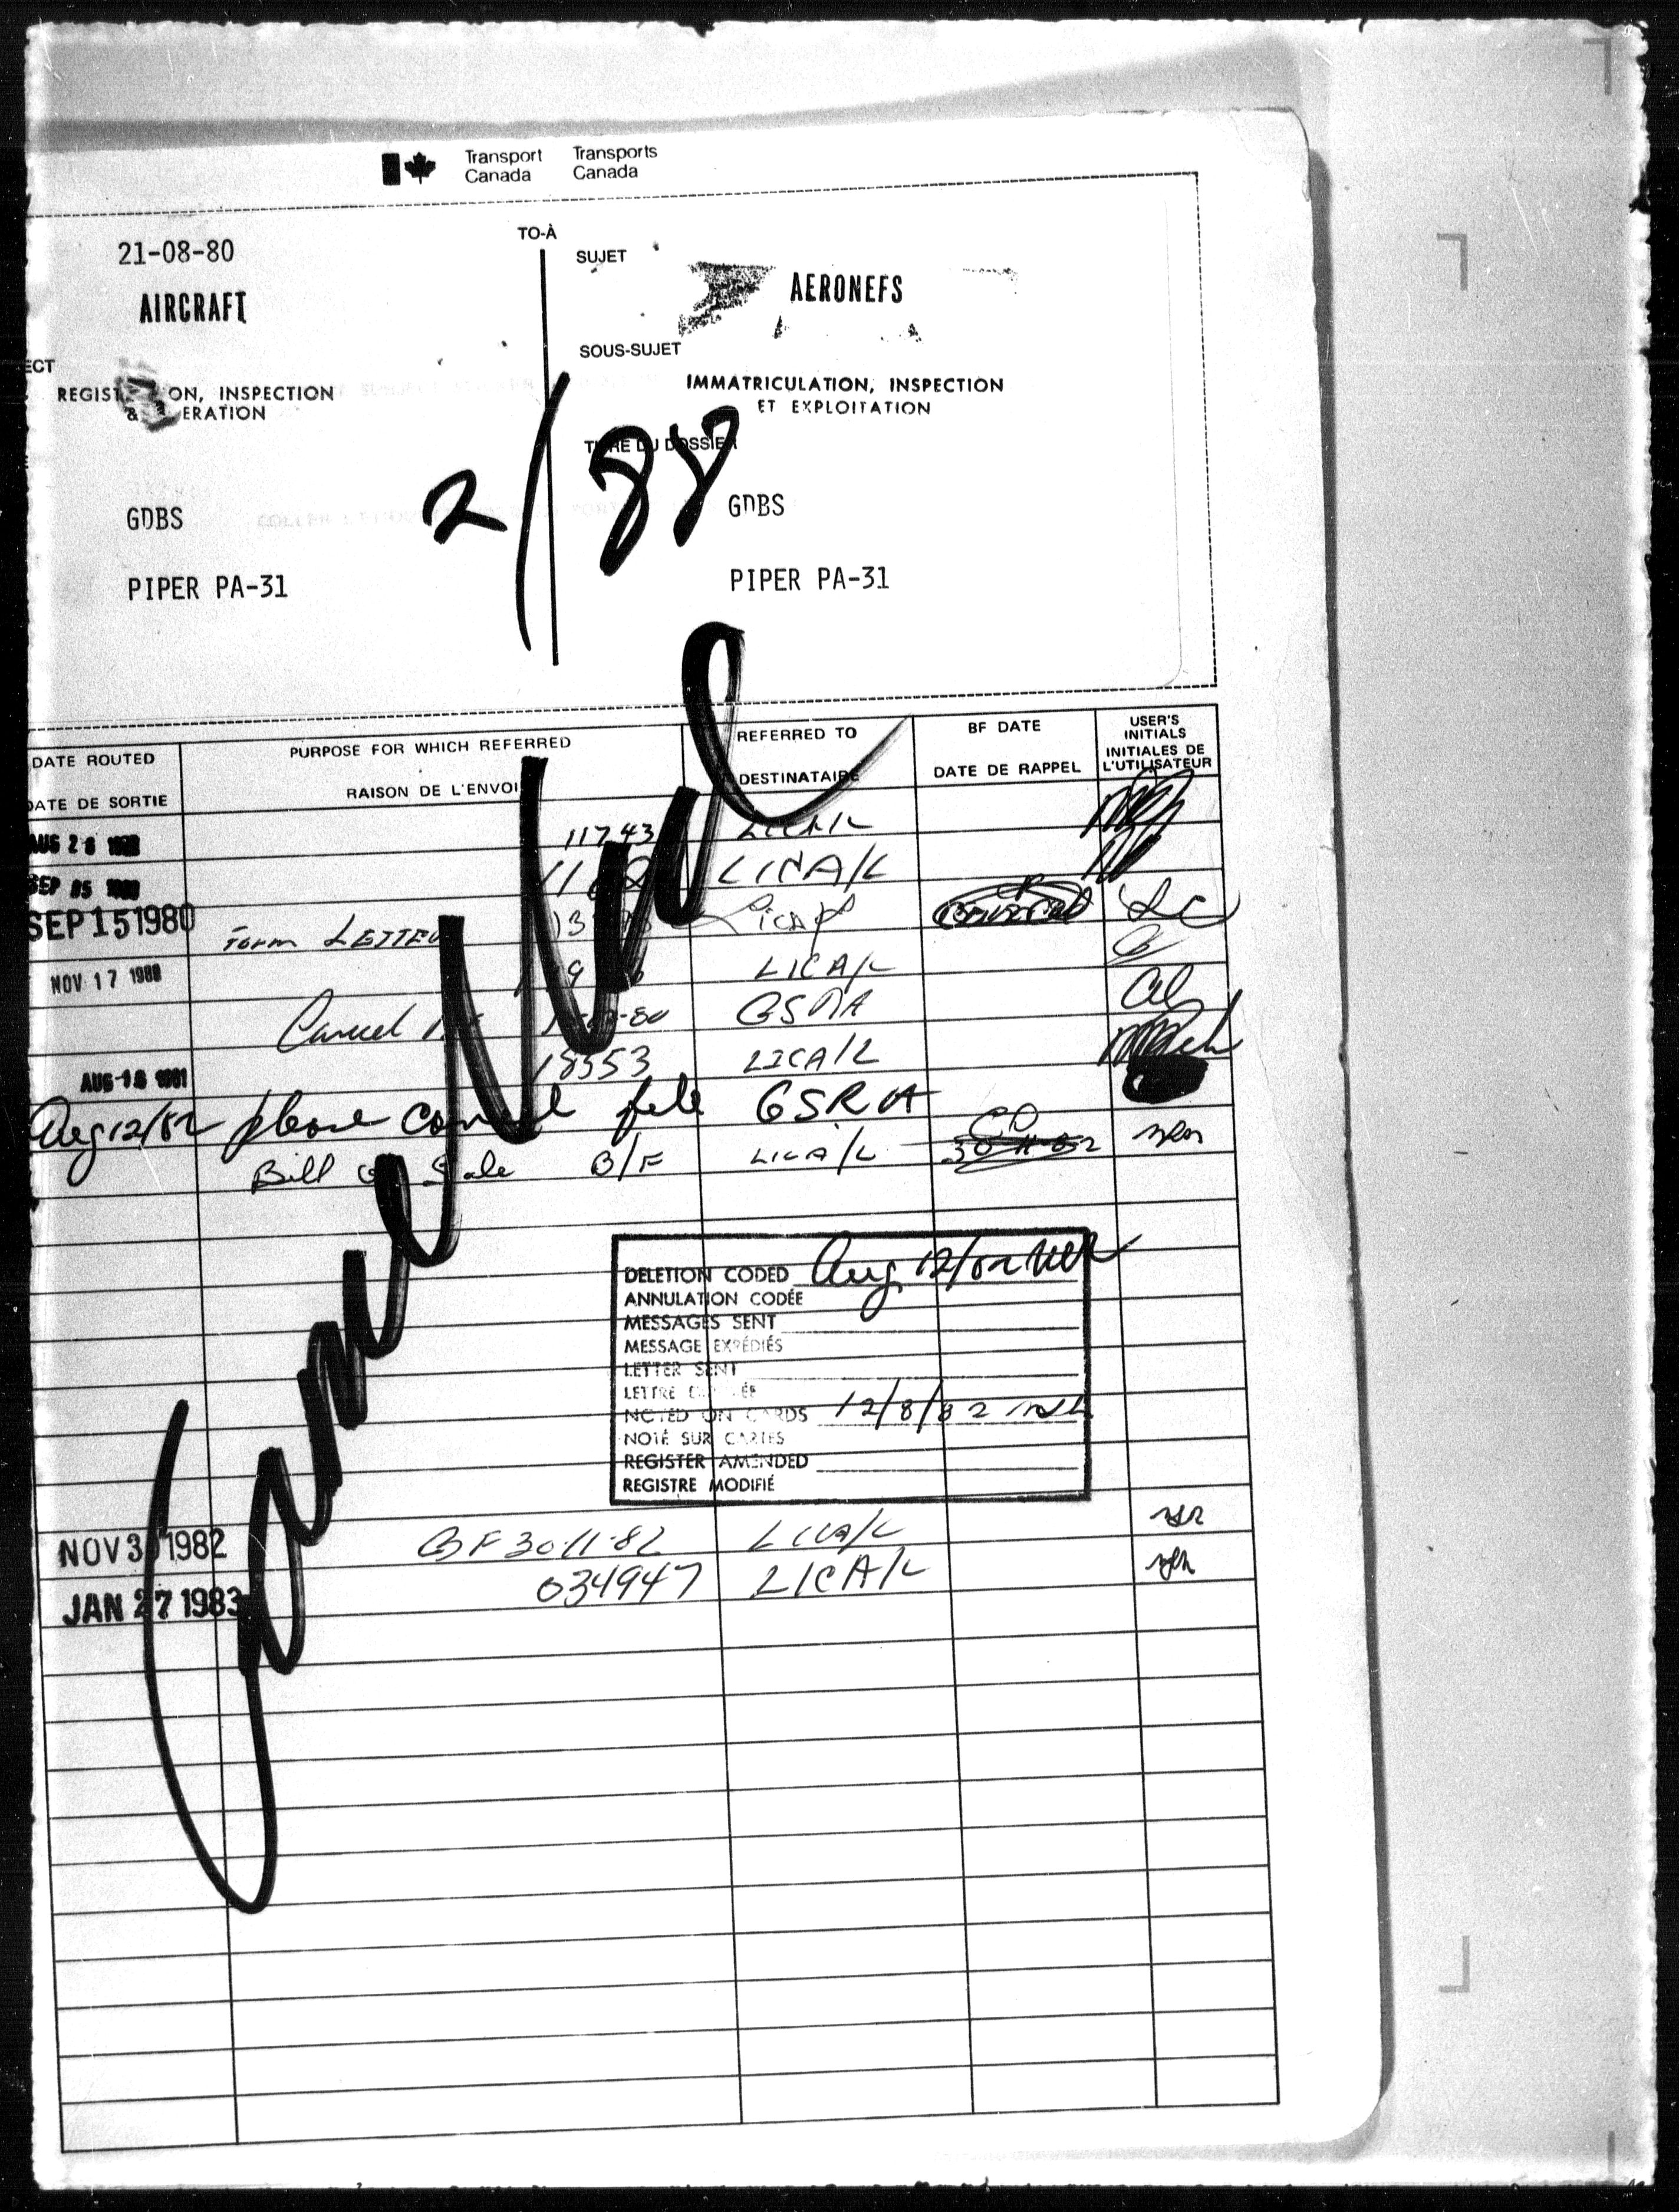 Transport Canada Transports Canada
21-08-80 TO-À
SUJET
AIRCRAFT AERONEFS
ECT SOUS-SUJET
REGIST ON, INSPECTION IMMATRICULATION, INSPECTION
& ERATION ET EXPLOITATION
TITRE DU DOSSIER
2/88
GDBS GDBS
PIPER PA-31 PIPER PA-31
DATE ROUTED PURPOSE FOR WHICH REFERRED REFERRED TO BF DATE USER'S INITIALS
DATE DE SORTIE RAISON DE L'ENVOI DESTINATAIRE DATE DE RAPPEL INITIALES DE L'UTILISATEUR
AUG 28 11743 LICA/L
SEP 05 LICA/L
SEP 15 1980 Form LETTER
NOV 17 1980 LICA/L
Cancel
18553 LICA/L
AUG 18 1981
Aug 12/82 please cancel file GSRA
Bill of Sale B/F LICA/L 30-11-82
Cancelled
DELETION CODED Aug 12/82
ANNULATION CODÉE
MESSAGES SENT
MESSAGE EXPÉDIÉS
LETTER SENT
LETTRE
NOTED ON CARDS 12/8/82
NOTÉ SUR CARTES
REGISTER AMENDED
REGISTRE MODIFIÉ
NOV 30 1982 BF 30-11-82 LICA/L
JAN 27 1983 034947 LICA/L